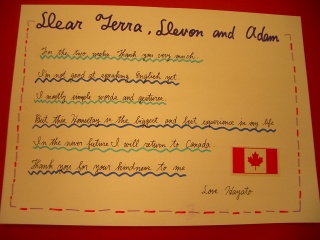 Dear Terra, Devon and Adam
For the two weeks Thank you very much.
I'm not good at speaking English yet.
I mostly simple words and gestures.
But this Homestay is the biggest and best experience in my life
In the never future I will return to Canada
Thank you for your kindness to me
Love Hayato